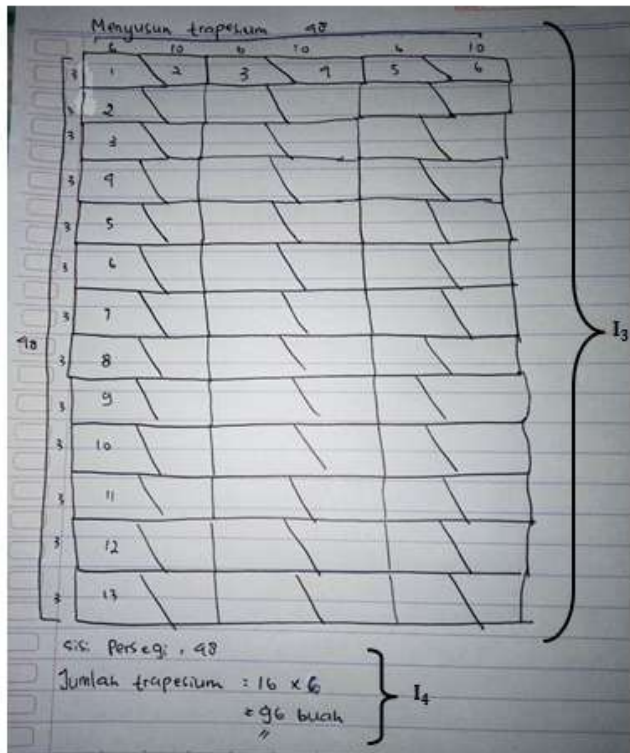 Menyusun trapesium 48
6 10 6 10 6 10
3 1 2 3 4 5 6
3 2
3 3
3 4
3 5
3 6
3 7
48
3 8
3 9
3 10
3 11
3 12
3 13
I₃
sisi persegi = 48
Jumlah trapesium = 16 × 6
= 96 buah
I₄